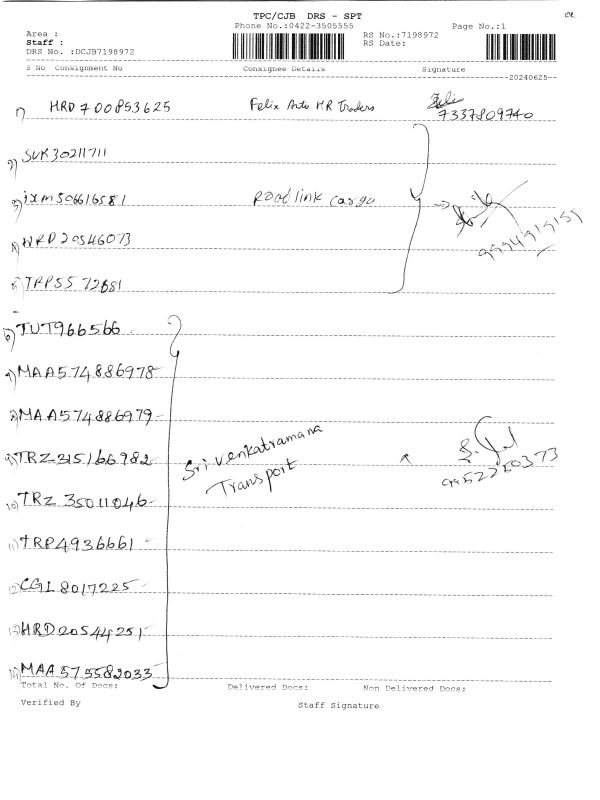 TPC/CJB DRS - SPT
Phone No.:0422-3505555 Page No.:1
Area : RS No.:7198972
Staff : RS Date:
DRS No. :DCJB7198972
S No Consignment No Consignee Details Signature
20240625
1) HRD700853625 Felix Auto HR Traders 7337809740
2) SVK30211711
3) ixm506616581 Road link cargo
4) HRD20546073 9994919155
5) TRP5572681
6) TUT966566
7) MAA574886978
8) MAA574886979
9) TRZ315166982 Sri Venkatramana 9952250373
10) TRZ 35011046 Transport
11) TRP4936661
12) CGL8017225
13) HRD20544251
14) MAA575582033
Total No. Of Docs: Delivered Docs: Non Delivered Docs:
Verified By Staff Signature